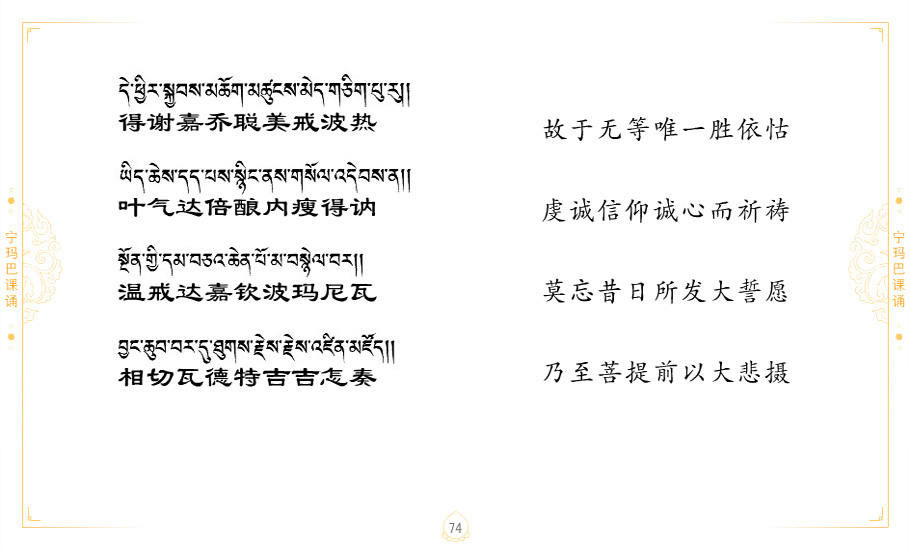 དེ་ཕྱིར་སྐྱབས་མཆོག་མཚུངས་མེད་གཅིག་པུ་རུ།།
得谢嘉乔聪美戒波热
故于无等唯一胜依怙
ཡིད་ཆེས་དད་པས་སྙིང་ནས་གསོལ་འདེབས་ན།།
叶气达倍酿内瘦得讷
虔诚信仰诚心而祈祷
སྔོན་གྱི་དམ་བཅའ་ཆེན་པོ་མ་བསྙེལ་བར།།
温戒达嘉钦波玛尼瓦
莫忘昔日所发大誓愿
བྱང་ཆུབ་བར་དུ་ཐུགས་རྗེས་རྗེས་འཛིན་མཛོད།།
相切瓦德特吉吉怎奏
乃至菩提前以大悲摄
宁玛巴课诵
宁玛巴课诵
74